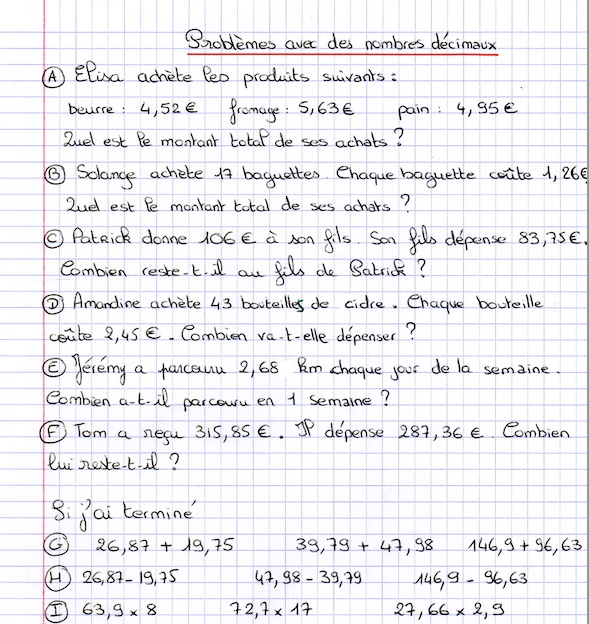 Problèmes avec des nombres décimaux
A Elisa achète les produits suivants :
beurre : 4,52 € fromage : 5,63 € pain : 4,95 €
Quel est le montant total de ses achats ?
B Solange achète 17 baguettes. Chaque baguette coûte 1,26€
Quel est le montant total de ses achats ?
C Patrick donne 106 € à son fils. Son fils dépense 83,75€.
Combien reste-t-il au fils de Patrick ?
D Amandine achète 43 bouteilles de cidre. Chaque bouteille
coûte 2,45 €. Combien va-t-elle dépenser ?
E Jérémy a parcouru 2,68 km chaque jour de la semaine.
Combien a-t-il parcouru en 1 semaine ?
F Tom a reçu 315,85 €. Il dépense 287,36 €. Combien
lui reste-t-il ?
Si j'ai terminé
G 26,87 + 19,75 39,79 + 47,98 146,9 + 96,63
H 26,87 - 19,75 47,98 - 39,79 146,9 - 96,63
I 63,9 x 8 72,7 x 17 27,66 x 2,9